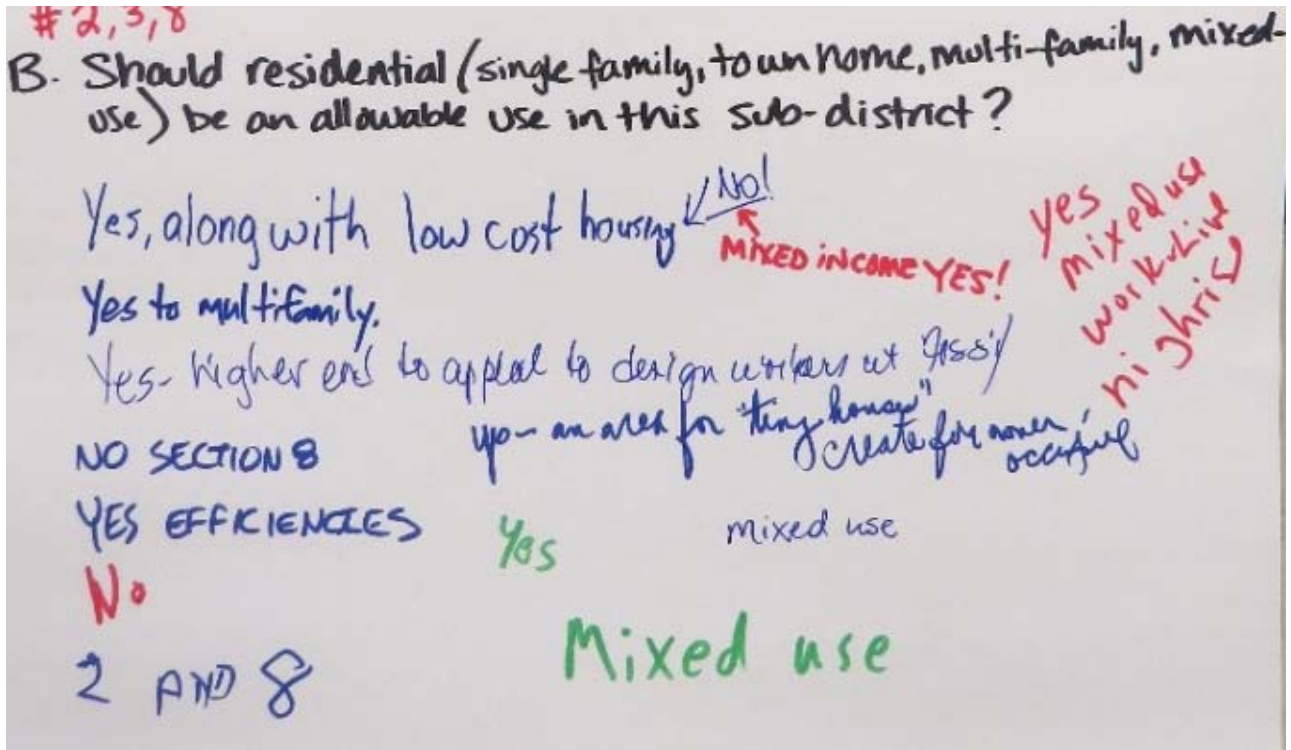 #2,3,8
B. Should residential (single family, town home, multi-family, mixed-
use) be an allowable use in this sub-district?
Yes, along with low cost housing
No!
MIXED INCOME YES!
yes
mixed use
work-Live
hi ghris
Yes to multifamily.
Yes- higher end to appeal to design workers at
yes- an area for "tiny houses"
create for owner
NO SECTION 8
YES EFFICIENCIES
Yes
mixed use
No
Mixed use
2 AND 8